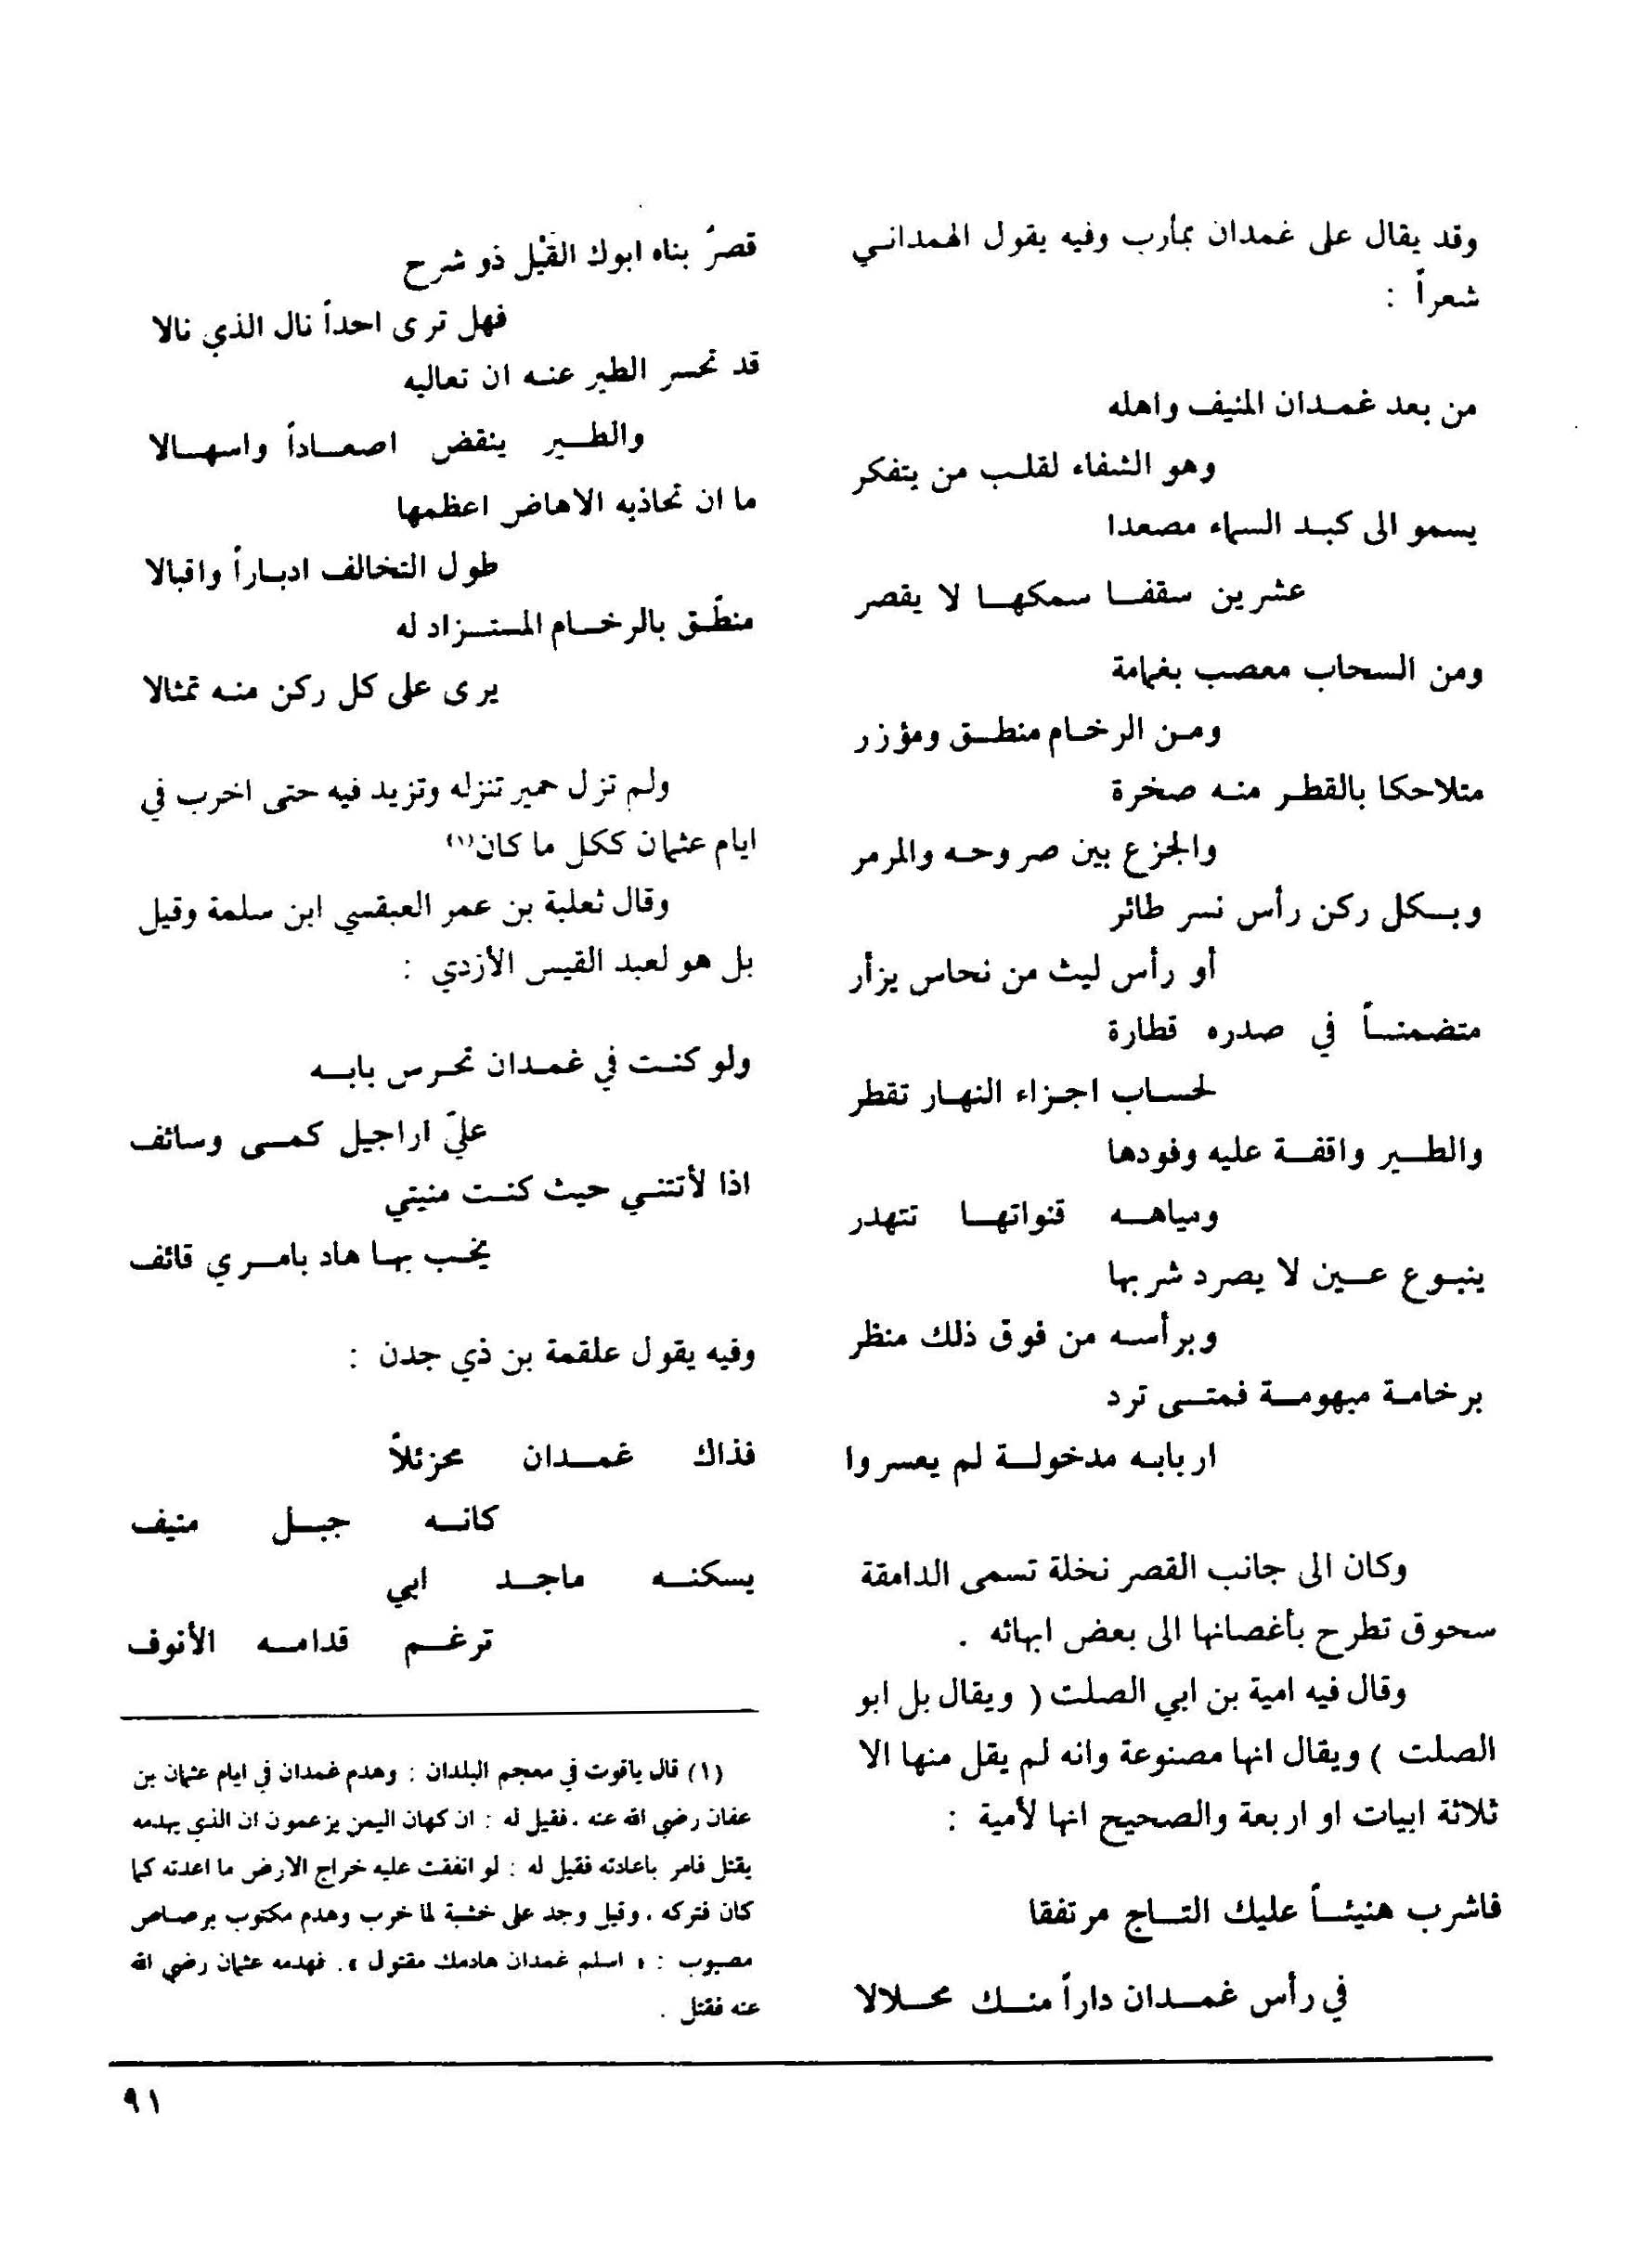 وقد يقال على غمدان بمأرب وفيه يقول الهمداني
شعراً :
من بعد غمدان المنيف واهله
وهو الشفاء لقلب من يتفكر
يسمو الى كبد السماء مصعدا
عشرين سقفا سمكها لا يقصر
ومن السحاب معصب بغمامة
ومن الرخام منطق ومؤزر
متلاحكا بالقطر منه صخرة
والجزع بين صروحه والمرمر
وبكل ركن رأس نسر طائر
أو رأس ليث من نحاس يزأر
متضمناً في صدره قطارة
لحساب اجزاء النهار تقطر
والطير واقفة عليه وفودها
ومياهه قنواتها تتهدر
ينبوع عين لا يصرد شربها
وبرأسه من فوق ذلك منظر
برخامة مبهومة فمتى ترد
اربابه مدخولة لم يعسروا
وكان الى جانب القصر نخلة تسمى الدامقة
سحوق تطرح بأغصانها الى بعض ابهائه .
وقال فيه امية بن ابي الصلت ( ويقال بل ابو
الصلت ) ويقال انها مصنوعة وانه لم يقل منها الا
ثلاثة ابيات او اربعة والصحيح انها لأمية :
فاشرب هنيئاً عليك التاج مرتفقا
في رأس غمدان داراً منك محلالا
قصرٌ بناه ابوك القَيْل ذو شرح
فهل ترى احداً نال الذي نالا
قد تحسر الطير عنه ان تعاليه
والطير ينقض اصعاداً واسهالا
ما ان تحاذيه الاهاض اعظمها
طول التخالف ادباراً واقبالا
منطّق بالرخام المستزاد له
يرى على كل ركن منه تمثالا
ولم تزل حمير تنزله وتزيد فيه حتى اخرب في
ايام عثمان ككل ما كان(١)
وقال ثعلبة بن عمر العبقسي ابن سلمة وقيل
بل هو لعبد القيس الأزدي :
ولو كنت في غمدان تحرس بابه
عليّ اراجيل كمى وسائف
اذا لأتتني حيث كنت منيتي
يخب بها هاد بامري قائف
وفيه يقول علقمة بن ذي جدن :
فذاك غمدان محزئلاً
كانه جبل منيف
يسكنه ماجد ابي
ترغم قدامه الأنوف
(١) قال ياقوت في معجم البلدان : وهدم غمدان في ايام عثمان بن
عفان رضي الله عنه . فقيل له : ان كهان اليمن يزعمون ان الذي يهدمه
يقتل فامر باعادته فقيل له : لو انفقت عليه خراج الارض ما اعدته كما
كان فتركه . وقيل وجد على خشبة لما خرب وهدم مكتوب برصاص
مصبوب : « اسلم غمدان هادمك مقتول » . فهدمه عثمان رضي الله
عنه فقتل .
٩١